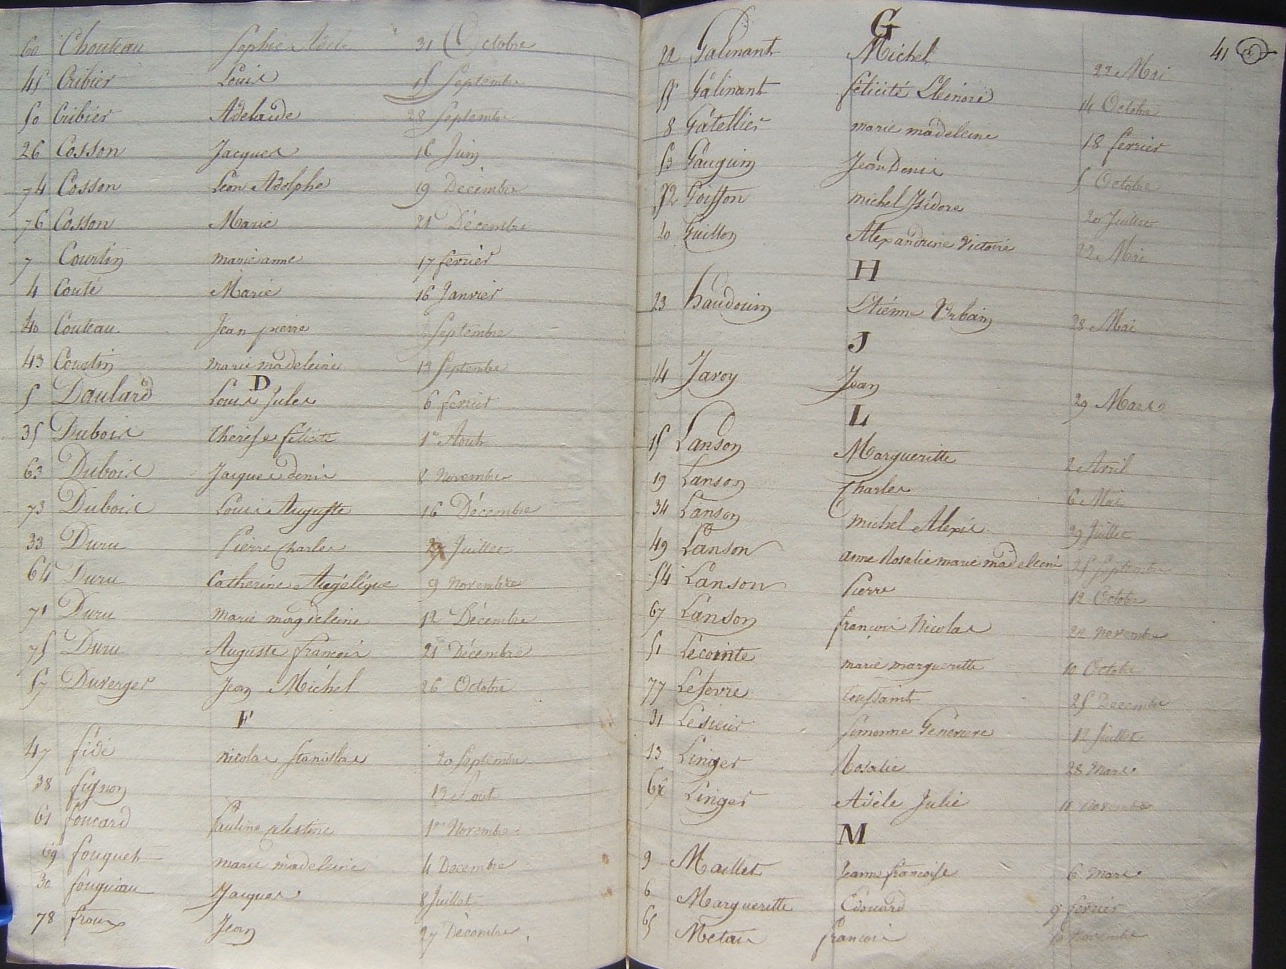 60 Chouteau Sophie Adele 31 Octobre
45 Cribier Louis 15 Septembre
50 Cribier Adelaide 28 Septembre
26 Cosson Jacques 16 Juin
74 Cosson Léon Adolphe 19 Décembre
76 Cosson Marie 21 Décembre
7 Courtin marie anne 17 février
4 Couté Marie 16 Janvier
40 Couteau Jean pierre Septembre
43 Coustin marie madeleine 13 Septembre
D
5 Daulard Louis Jules 6 février
35 Dubois thérèse félicité 1er Aout
63 Dubois Jacques denis 8 Novembre
73 Dubois Louis Auguste 16 Décembre
33 Duru Pierre Charles Juillet
64 Duru Catherine Angélique 9 Novembre
71 Duru marie magdeleine 12 Décembre
75 Duru Auguste françois 21 Décembre
57 Duverger Jean Michel 26 Octobre
F
47 fidé nicolas stanislas 20 Septembre
38 fignon 13 Aout
61 foucard Pauline 1er Novembre
69 fouquet marie madeleine 4 Décembre
30 fouquiau Jacques 8 Juillet
78 froux Jean 27 Décembre
41
G
22 Galinant Michel 23 Mai
55 Galinant félicité Eléonore 14 Octobre
8 Gatellier marie madeleine 18 février
53 Gauguin Jean Denis 5 Octobre
32 Goisson michel Isidore 20 Juillet
20 Guillon Alexandrine Victoire 22 Mai
H
23 haudouin Etienne Urbain 28 Mai
J
14 Javoy Jean 29 Mars
L
15 Lanson Margueritte 2 Avril
19 Lanson Charles 6 Mai
34 Lanson michel Alexis 29 Juillet
49 Lanson anne Rosalie marie madeleine 25 Septembre
54 Lanson Pierre 12 Octobre
67 Lanson françois Nicolas 22 novembre
51 Lecointe marie margueritte 10 Octobre
77 Lefevre toussaint 25 Décembre
31 Lesieur Simonne Genevieve 12 Juillet
13 Linger Rosalie 28 mars
Linger Adèle Julie 11 novembre
M
9 Maillet Jeanne françoise 6 mars
6 Margueritte Edouard 9 février
65 Metau françois novembre